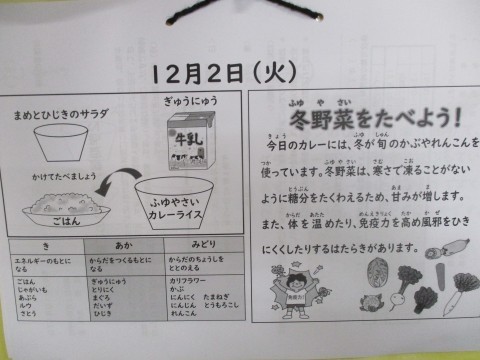 12月2日（火）
まめとひじきのサラダ
ぎゅうにゅう
牛乳
かけてたべましょう
ごはん
ふゆやさい
カレーライス
き
あか
みどり
エネルギーのもとに
なる
からだをつくるもとに
なる
からだのちょうしを
ととのえる
ごはん
じゃがいも
あぶら
ルウ
さとう
ぎゅうにゅう
とりにく
まぐろ
だいず
ひじき
カリフラワー
かぶ
にんにく　たまねぎ
にんじん　とうもろこし
れんこん
ふゆやさい
冬野菜をたべよう！
きょう ふゆ しゅん
今日のカレーには、冬が旬のかぶやれんこんを
つか ふゆやさい さむ こお
使っています。冬野菜は、寒さで凍ることがない
とうぶん あま ま
ように糖分をたくわえるため、甘みが増します。
からだ あたた めんえきりょく たか かぜ
また、体を温めたり、免疫力を高め風邪をひき
にくくしたりするはたらきがあります。
免疫力！